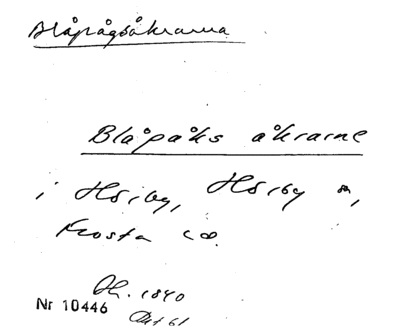 Blåpågsåkrarna
Blåpåks åkrarne
i Hörby, Hörby sn,
Frosta hd.
Dh. 1840
Nr 10446
Akt 61